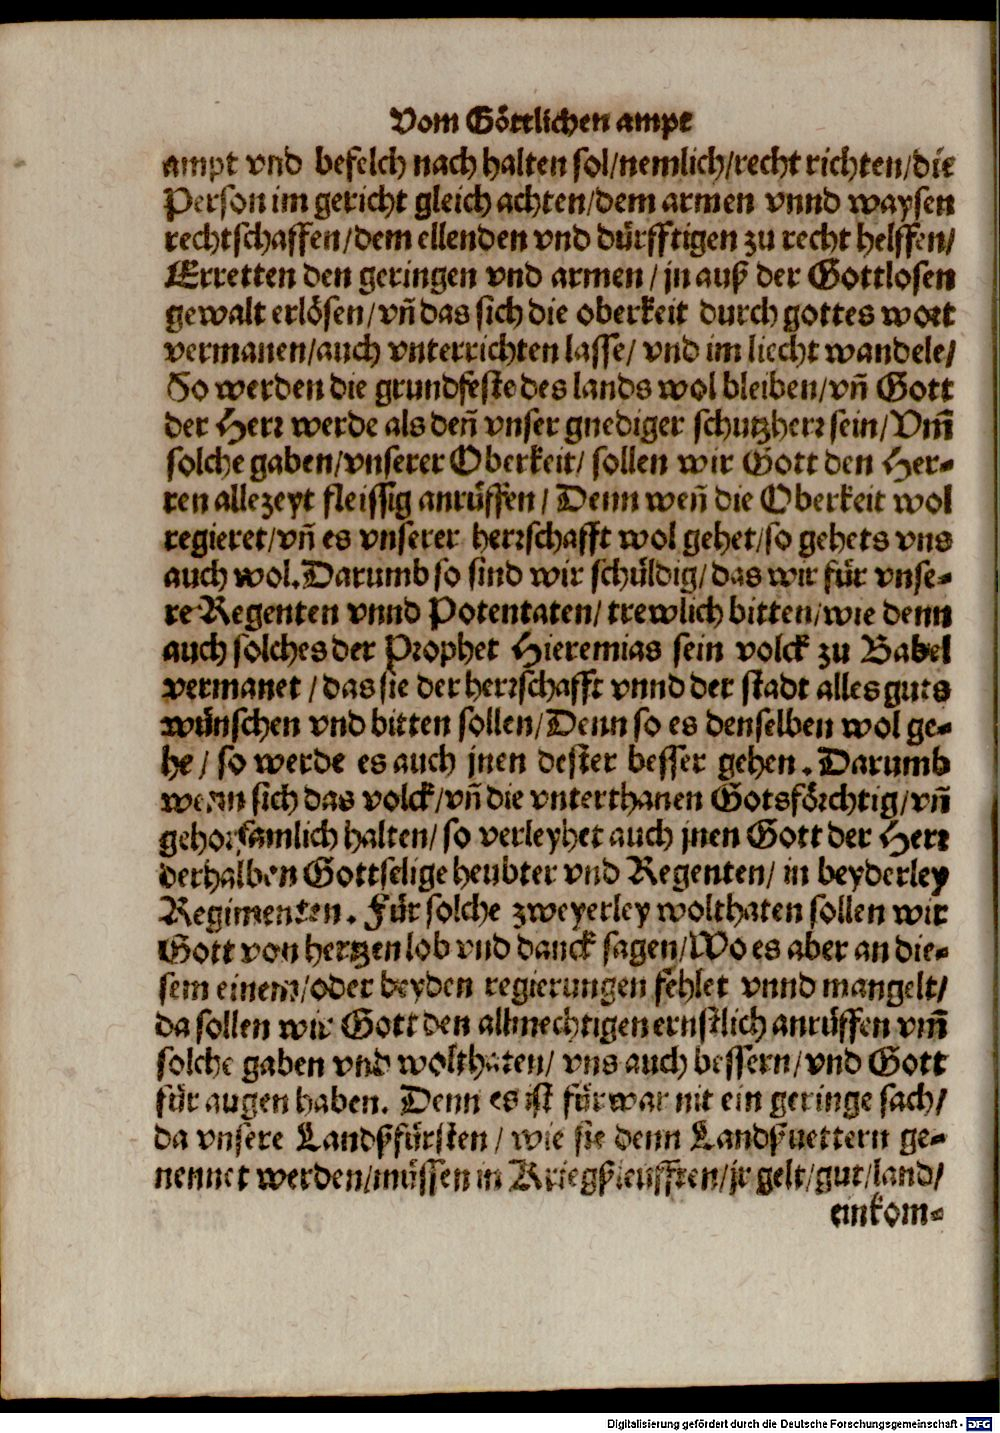 Vom Göttlichen ampt
ampt vnd befelch nach halten sol/nemlich/recht richten/die
Person im gericht gleich achten/dem armen vnnd waysen
rechtschaffen/dem ellenden vnd dürfftigen zu recht helffen/
Erretten den geringen vnd armen/jn auß der Gottlosen
gewalt erlösen/vñ das sich die oberkeit durch gottes wort
vermanen/auch vnterrichten lasse/ vnd im liecht wandele/
So werden die grundfeste des lands wol bleiben/vñ Gott
der Herr werde als deñ vnser gnediger schutzherr sein/Vm̃
solche gaben/vnserer Oberkeit/ sollen wir Gott den Her-
ren allezeyt fleissig anrüffen/ Denn weñ die Oberkeit wol
regieret/vñ es vnserer herrschafft wol gehet/so gehets vns
auch wol. Darumb so sind wir schüldig/das wir für vnse-
re Regenten vnnd Potentaten/trewlich bitten/wie denn
auch solches der Prophet Hieremias sein volck zu Babel
vermanet/das sie der herrschafft vnnd der stadt alles guts
wünschen vnd bitten sollen/Denn so es denselben wol ge-
he/ so werde es auch jnen dester besser gehen. Darumb
wenn sich das volck/vñ die vnterthanen Gotsförchtig/vñ
gehorsamlich halten/so verleyhet auch jnen Gott der Herr
derhalben Gottselige heubter vnd Regenten/ in beyderley
Regimenten. Für solche zweyerley wolthaten sollen wir
Gott von hertzen lob vnd danck sagen/Wo es aber an die-
sem einem/oder beyden regierungen fehlet vnnd mangelt/
da sollen wir Gott den allmechtigen ernstlich anrüffen vm̃
solche gaben vnd wolthaten/ vns auch bessern/vnd Gott
für augen haben. Denn es ist fürwar nit ein geringe sach/
da vnsere Landßfürsten/ wie sie denn Landßuettern ge-
nennet werden/müssen in Kriegßleufften/jr gelt/gut/land/
einkom-
Digitalisierung gefördert durch die Deutsche Forschungsgemeinschaft - DFG